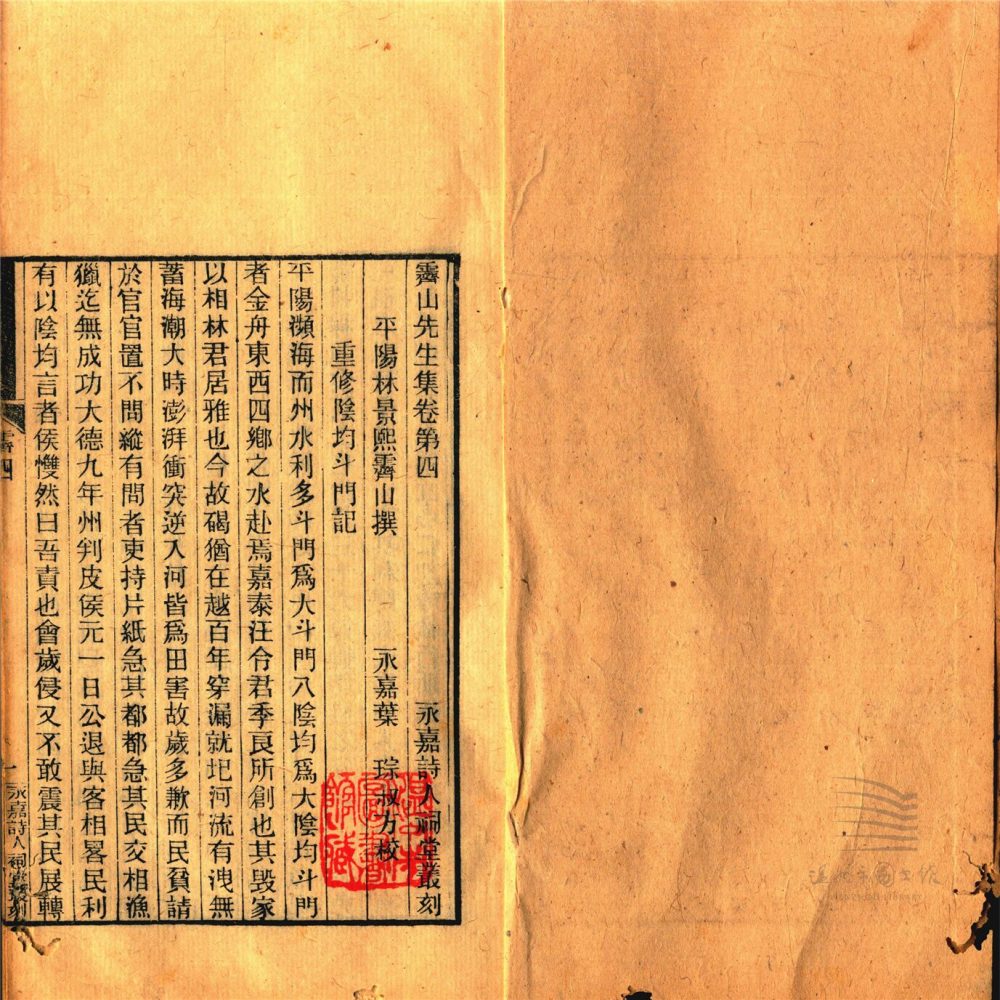 霽山先生集卷第四 永嘉詩人祠堂叢刻
平陽林景熙霽山撰 永嘉葉 琮叔方校
重修陰均斗門記
平陽瀕海而州水利多斗門爲大斗門八陰均爲大陰均斗門
者金舟東西四鄉之水赴焉嘉泰汪令君季良所創也其毀家
以相林君居雅也今故碣猶在越百年穿漏就圯河流有洩無
蓄海潮大時澎湃衝突逆入河皆爲田害故歲多歉而民貧請
於官官置不問縱有問者吏持片紙急其都都急其民交相漁
獵迄無成功大德九年州判皮侯元一日公退與客相畧民利
有以陰均言者侯戄然曰吾責也會歲侵又不敢震其民展轉
霽四
一
永嘉詩人祠堂叢刻